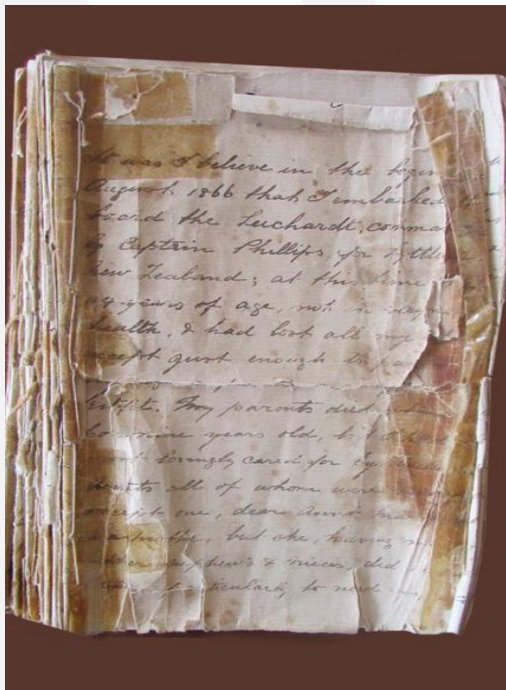 It was I believe in the begin
August 1866 that I embarked
board the Luchardt, comma
by Captain Phillips, for Lyttle
New Zealand; at this time
24 years of age, not in very
health, & had lost all my
except just enough to pa
My parents died
nine years old,
lovingly cared for by
all of whom were
except one, dear Aunt
but she, having
nephews & nieces, did
particularly to need